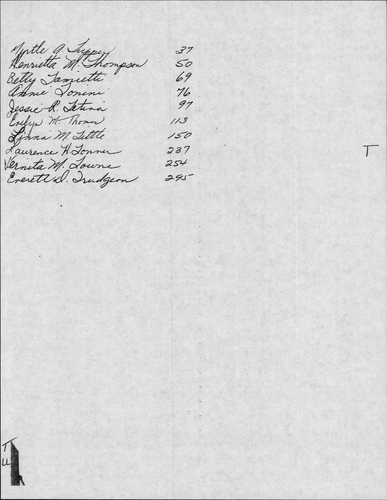 Myrtle A. 37
Henrietta M. Thompson 50
Betty 69
Annie Tonini 76
Jessie R. 97
Evelyn M. Thomas 113
M. Tuttle 150
Laurence W. Tonner 237
Vernita M. Towne 254
Everett D. Trudgeon 295
T
T
U
R